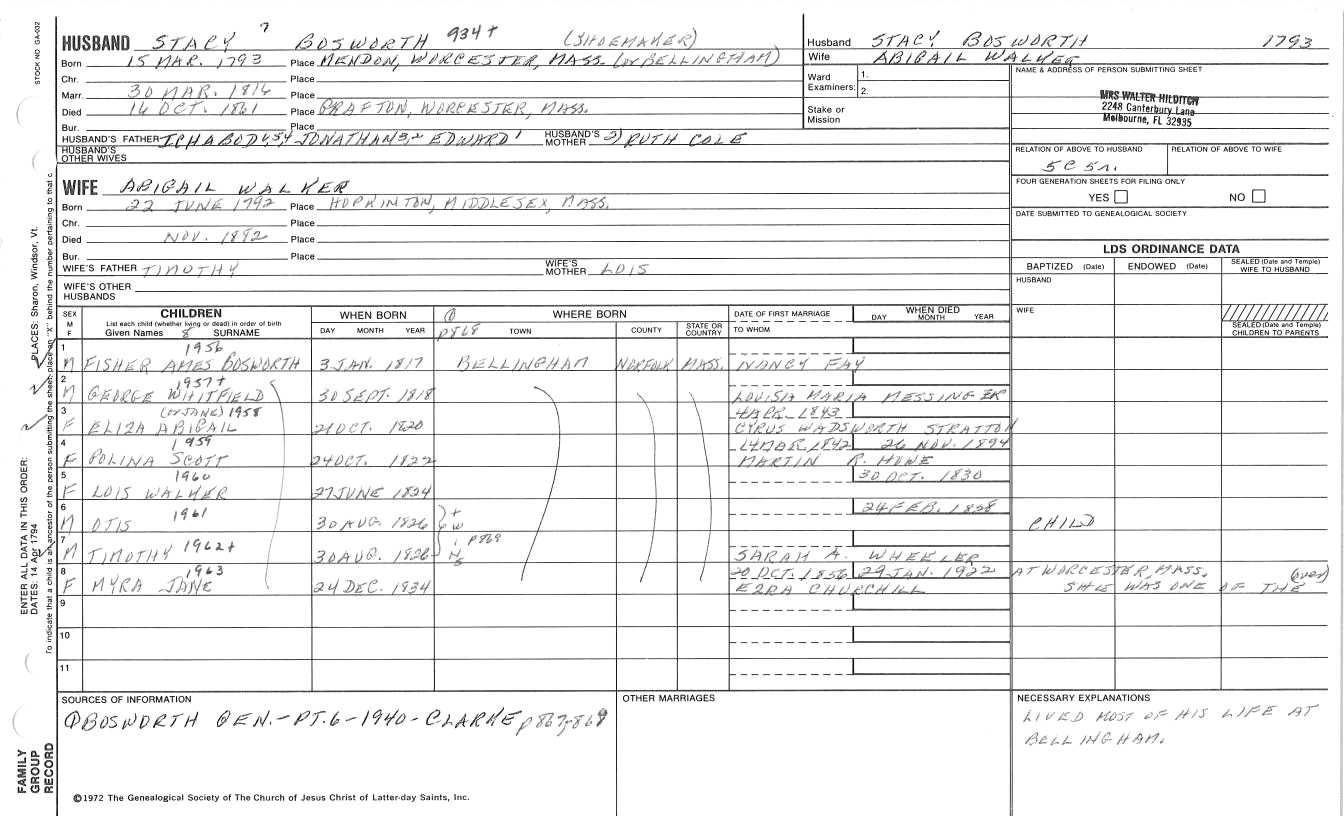 STOCK NO. GA-032
HUSBAND STACY 7 BOSWORTH 934+ (SHOEMAKER)
Born 15 MAR. 1793 Place MENDON, WORCESTER, MASS. (or BELLINGHAM)
Chr. Place
Marr. 30 MAR. 1816 Place
Died 14 OCT. 1861 Place GRAFTON, WORCESTER, MASS.
Bur. Place
HUSBAND'S FATHER ICHABOD 6,5,4 JONATHAN 3,2 EDWARD 1 HUSBAND'S MOTHER 2) RUTH COLE
HUSBAND'S OTHER WIVES
Husband STACY BOSWORTH 1793
Wife ABIGAIL WALKER
Ward Examiners: 1. 2.
Stake or Mission
NAME & ADDRESS OF PERSON SUBMITTING SHEET
MRS WALTER HILDITCH
2248 Canterbury Lane
Melbourne, FL 32935
RELATION OF ABOVE TO HUSBAND RELATION OF ABOVE TO WIFE
5C 5r.
FOUR GENERATION SHEETS FOR FILING ONLY
YES NO
DATE SUBMITTED TO GENEALOGICAL SOCIETY
WIFE ABIGAIL WALKER
Born 22 JUNE 1792 Place HOPKINTON, MIDDLESEX, MASS.
Chr. Place
Died NOV. 1892 Place
Bur. Place
WIFE'S FATHER TIMOTHY WIFE'S MOTHER LOIS
WIFE'S OTHER HUSBANDS
LDS ORDINANCE DATA
BAPTIZED (Date) ENDOWED (Date) SEALED (Date and Temple) WIFE TO HUSBAND
HUSBAND
WIFE
SEALED (Date and Temple) CHILDREN TO PARENTS
SEX M F CHILDREN WHEN BORN WHERE BORN DATE OF FIRST MARRIAGE WHEN DIED
List each child (whether living or dead) in order of birth
Given Names 8 SURNAME DAY MONTH YEAR p868 TOWN COUNTY STATE OR COUNTRY TO WHOM DAY MONTH YEAR
1 1956
M FISHER AMES BOSWORTH 3 JAN. 1817 BELLINGHAM NORFOLK MASS. NANCY FAY
2 1957+
M GEORGE WHITFIELD 30 SEPT. 1818 LOUISA MARIA MESSINGER
3 (or JANE) 1958 4 APR. 1843
F ELIZA ABIGAIL 21 OCT. 1820 CYRUS WADSWORTH STRATTON
4 1959 14 MAR. 1842 26 NOV. 1894
F POLINA SCOTT 24 OCT. 1822 MARTIN R. HOWE
5 1960 30 OCT. 1830
F LOIS WALKER 27 JUNE 1824
6 1961 24 FEB. 1828
M OTIS 30 AUG. 1826 CHILD
7 1962+ p869
M TIMOTHY 30 AUG. 1826 SARAH A. WHEELER
8 1963 20 OCT. 1856 29 JAN. 1922 AT WORCESTER, MASS. (over)
F MYRA JANE 24 DEC. 1834 EZRA CHURCHILL SHE WAS ONE OF THE
9
10
11
SOURCES OF INFORMATION
① BOSWORTH GEN.-PT.6-1940-CLARKE p867-869
OTHER MARRIAGES
NECESSARY EXPLANATIONS
LIVED MOST OF HIS LIFE AT
BELLINGHAM.
©1972 The Genealogical Society of The Church of Jesus Christ of Latter-day Saints, Inc.
ENTER ALL DATA IN THIS ORDER:
DATES: 14 Apr 1794
PLACES: Sharon, Windsor, Vt.
To indicate that a child is an ancestor of the person submitting the sheet, place an "X" behind the number pertaining to that c
FAMILY GROUP RECORD